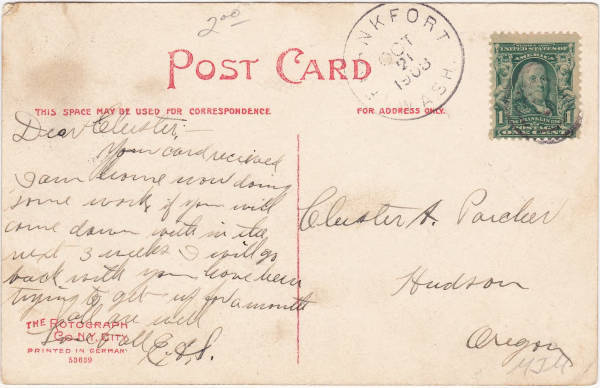 2.00
FRANKFORT
OCT
21
1908
WASH.
UNITED STATES OF AMERICA
1
1
FRANKLIN
POSTAGE
ONE CENT
POST CARD
THIS SPACE MAY BE USED FOR CORRESPONDENCE
FOR ADDRESS ONLY.
Dear Cluster:-
Your card recieved
I am home now doing
some work, if you will
come down with in the
next 3 weeks I will go
back with you have been
trying to get up for a month
all are well
Love to all E.A.S.
Cluster A. Parcher
Hudson
Oregon
THE ROTOGRAPH
CO. N.Y. CITY
PRINTED IN GERMANY